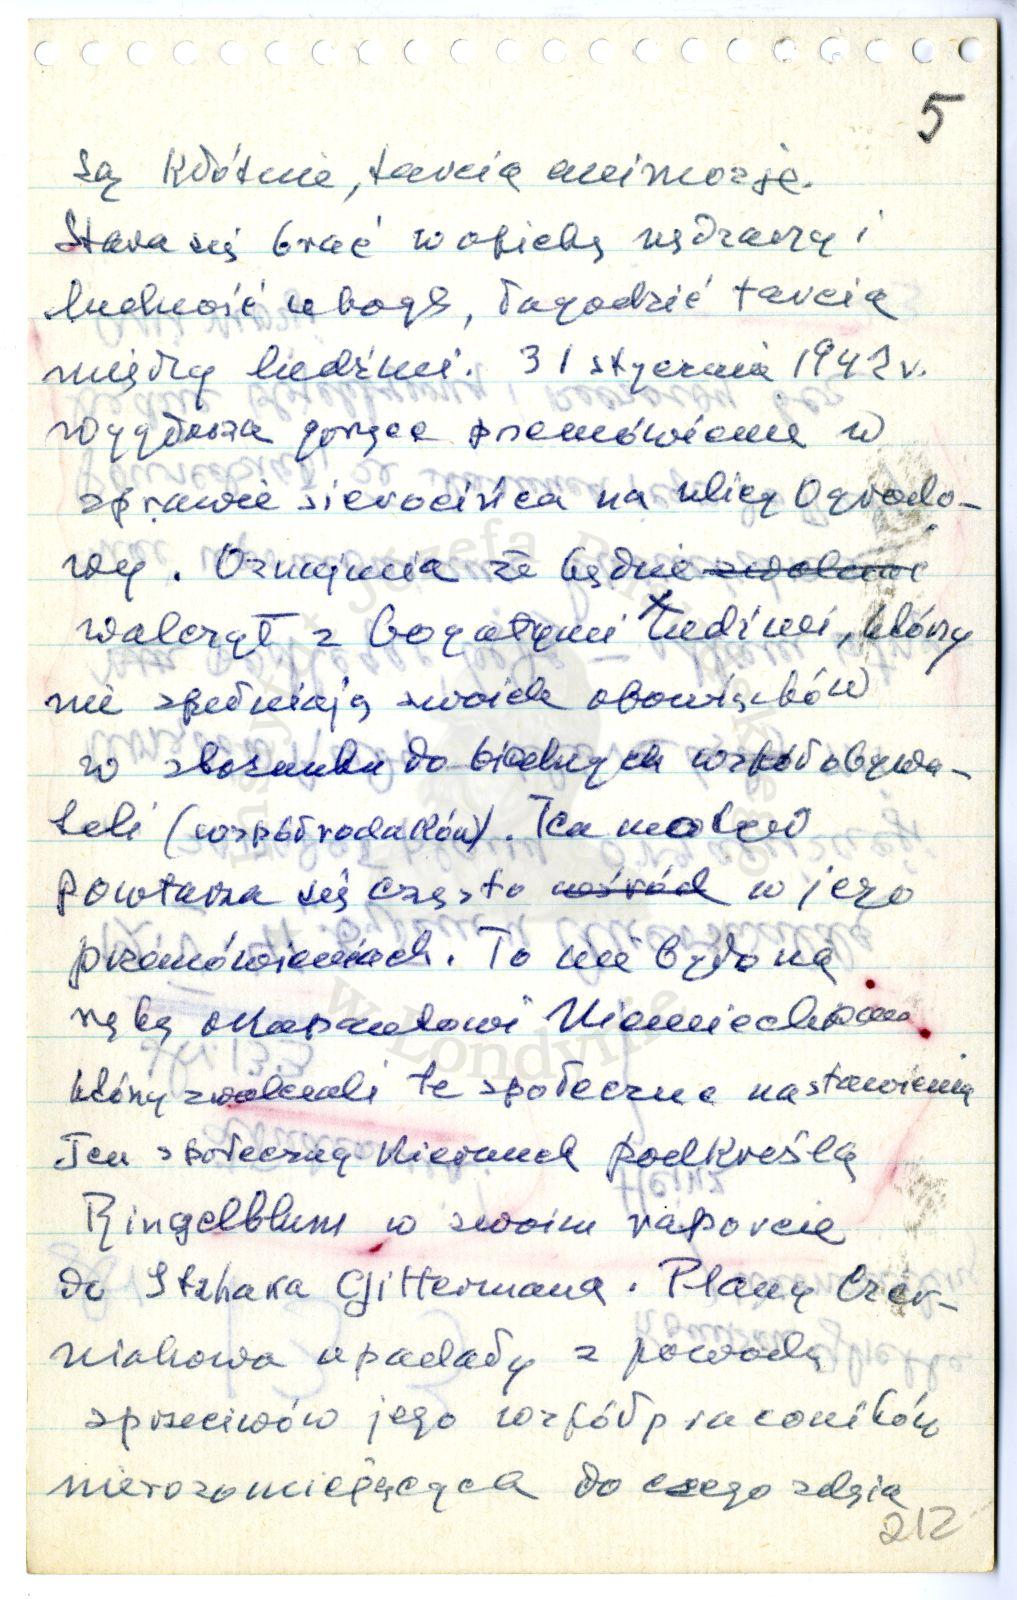 5
są kłótnie, tarcia animozje.
Stara się brać w opiekę nędzarzy i
ludność ubogą, łagodzić tarcia
między ludźmi. 31 stycznia 1942 r.
wygłasza gorące przemówienie w
sprawie sierocińca na ulicy Ogrodo-
wej. Oznajmia że będzie
walczył z bogatymi ludźmi, którzy
nie spełniają swoich obowiązków
w stosunku do biednych współobywa-
teli (współrodaków). Ten motyw
powtarza się często wśród w jego
przemówieniach. To nie było na
rękę okupantowi Niemieckiemu
którzy zwalczali te społeczne nastawienia
Ten społeczny kierunek podkreśla
Ringelblum w swoim raporcie
do Itzhaka Gittermana. Plany Czer-
niakowa upadały z powodu
sprzeciwów jego współpracowników
nierozumiejących do czego zdąża
212
Instytut Józefa Piłsudskiego
w Londynie